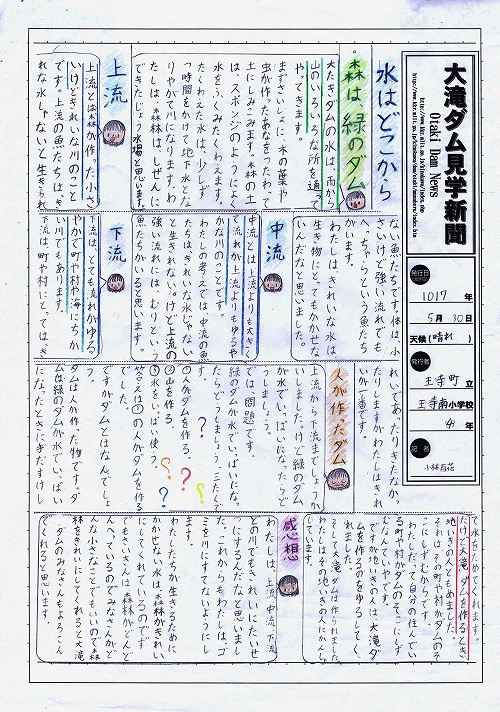 大滝ダム見学新聞
Otaki Dam News
発行日
1017年
5月30日
天候(晴れ)
発行者
王寺町立
王寺南小学校
4年
記者
小林百花
水はどこから
森は緑のダム
大たきダムの水は、雨から
山のいろいろな所を通って
やってきます。
まずさいしょに、木の葉や
虫が作ったあなをつたわって
土にしみこみます。森の土
は、スポンジのようによく
水をふくみたくわえます。
たくわえた水は、少しず
つ時間をかけて地下水とな
りやがて川になります。わ
たしは、森林は、ぜんぜんに
上流
上流とは森が作った小さ
いけどきれいな川のこと
です。上流の魚たちは、き
れな水じゃないと生きられ
ない魚たちです。体は、小
さいけど強い流れでも
へっちゃらという魚たち
がいます。
わたしはきれいな水は
生き物にとてもかかせな
いんだなと思いました。
中流
中流とは上流よりも大きく
て流れが上流よりもゆるや
かな川のことです。
わたしの考えでは、中流の魚
たちはきれいな水じゃない
と生きれない。けど上流の
強い流れには、むりという
魚たちがいると思います。
下流
下流は、とても流れがゆる
やかで町や村や海にちか
い川でもあります。
れいであったりきたなかっ
たりしますがわたしはきれ
いが一番です。
人が作ったダム
上流から下流までしょうか
いしましたけど緑のダム
が水でいっぱいになったらど
うしましょう。
では問題です。
緑のダムが水でいっぱいにな
ったらどうしましょう。三たくで
す。
①人がダムを作る。
②山を作る。
③水をいっぱい使う。
答えは①の人がダムを作る
でした。
ですがダムとはなんでしょ
う。
ダムは人が作った物です。ダ
ムは緑のダムが水でいっぱい
になったときに手だすけし
て水をためてくれます。
だけど大滝ダムを作るとき、
地いきの人ともめました。
それはその町や村がダムのそ
こにしずむからです。
わたしだって自分の住んでい
る町や村がダムのそこにしず
むなんていやです。
ですが地いきの人は大滝ダ
ムを作るのをゆるしてく
れました。
そして大滝ダムは作られました。
わたしはその地いきの人にかんしゃ
しています。
感想
わたしは、上流、中流、下流
どの川でもきれいにたいせ
つにするんだなと思いまし
た。これからもわたしは、ゴ
ミを川にすてないようにし
ます。
わたしたちが生きるために
かかせない水は、森林がきれい
にしてくれているのです。
でもさいきんは、森林がどんど
んへっているのでみなさんがど
んな小さなことでもいいので森
林をきれいにしてくれると大滝
ダムのみなさんもよろこん
でくれると思います。